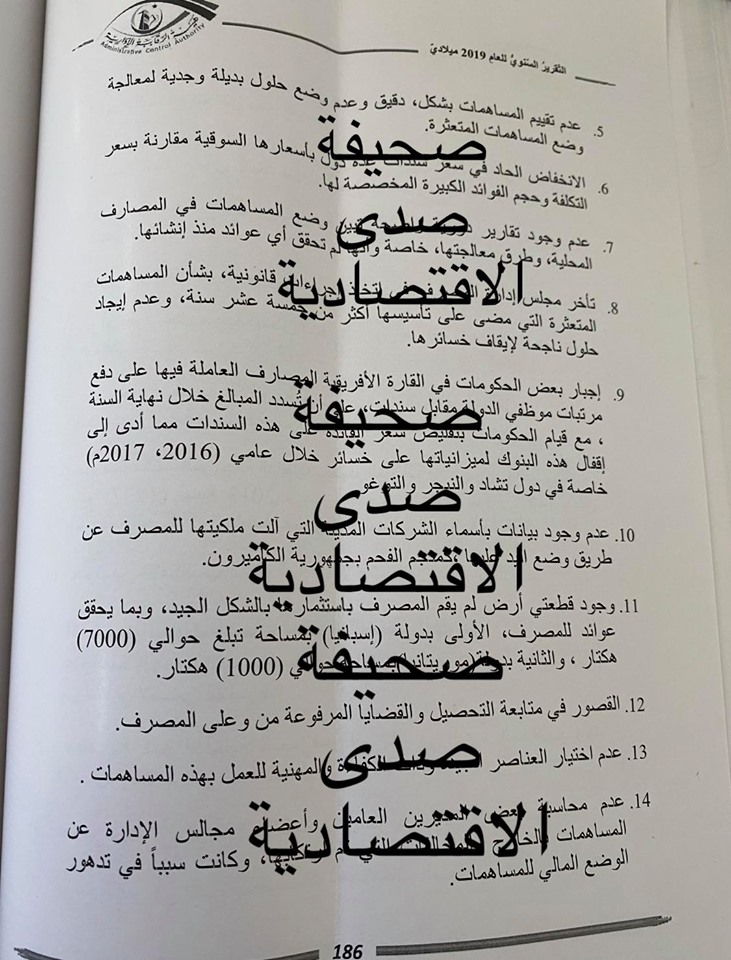 هيئة الرقابة الإدارية
Administrative Control Authority
التقرير السنوي للعام 2019 ميلادي
5. عدم تقييم المساهمات بشكل، دقيق وعدم وضع حلول بديلة وجدية لمعالجة
وضع المساهمات المتعثرة.
صحيفة
6. الانخفاض الحاد في سعر سندات عدة دول بأسعارها السوقية مقارنة بسعر
التكلفة وحجم الفوائد الكبيرة المخصصة لها.
صدى
7. عدم وجود تقارير تبين وضع المساهمات في المصارف
المحلية، وطرق معالجتها، خاصة وأنها لم تحقق أي عوائد منذ إنشائها.
الاقتصادية
8. تأخر مجلس إدارة في اتخاذ إجراءات قانونية، بشأن المساهمات
المتعثرة التي مضى على تأسيسها أكثر من خمسة عشر سنة، وعدم إيجاد
حلول ناجحة لإيقاف خسائرها.
9. إجبار بعض الحكومات في القارة الأفريقية المصارف العاملة فيها على دفع
مرتبات موظفي الدولة مقابل سندات، على أن تُسدد المبالغ خلال نهاية السنة
صحيفة
، مع قيام الحكومات بتقليص سعر الفائدة على هذه السندات مما أدى إلى
إقفال هذه البنوك لميزانياتها على خسائر خلال عامي (2016، 2017م)
خاصة في دول تشاد والنيجر والتوغو
صدى
10. عدم وجود بيانات بأسماء الشركات المدينة التي آلت ملكيتها للمصرف عن
طريق وضع اليد عليها كمنجم الفحم بجمهورية الكاميرون.
الاقتصادية
11. وجود قطعتي أرض لم يقم المصرف باستثمارها بالشكل الجيد، وبما يحقق
عوائد للمصرف، الأولى بدولة (إسبانيا) بمساحة تبلغ حوالي (7000)
هكتار ، والثانية بدولة (موريتانيا) بمساحة حوالي (1000) هكتار.
صحيفة
12. القصور في متابعة التحصيل والقضايا المرفوعة من وعلى المصرف.
صدى
13. عدم اختيار العناصر الكفاءة والمهنية للعمل بهذه المساهمات .
14. عدم محاسبة بعض المديرين العامين وأعضاء مجالس الإدارة عن
الاقتصادية
المساهمات وكانت سبباً في تدهور
الوضع المالي للمساهمات.
186